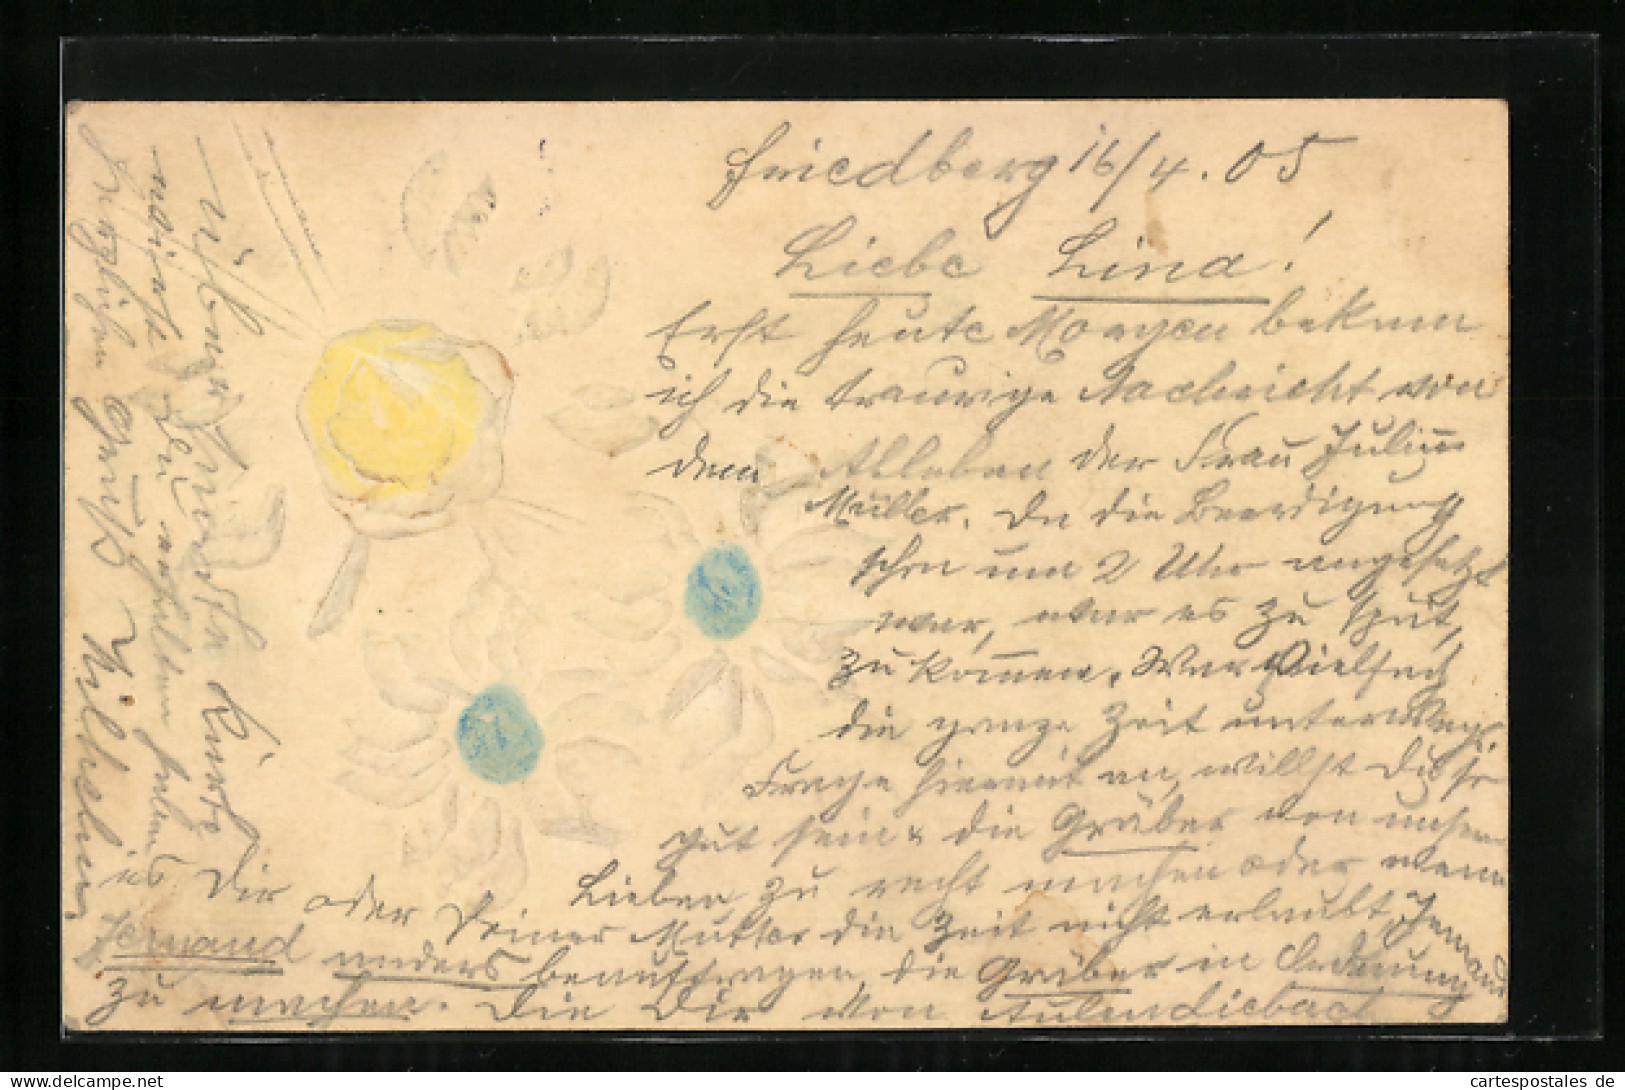 Friedberg 16/4.05
Liebe Lina!
Erst heute Morgen bekam
ich die traurige Nachricht von
dem Ableben der Frau Julius
Müller. Da die Beerdigung
schon um 2 Uhr angesetzt
war, war es zu spät,
zu kommen. War vielfach
die ganze Zeit unterwegs.
Frage hiermit an, willst Du so
gut sein & die Gräber von unsern
Lieben zu recht machen oder wenn
es Dir oder Deiner Mutter die Zeit nicht erlaubt, Jemand
Jemand anders beauftragen, die Gräber in Ordnung
zu machen. Die Dir von Aulendiebach
Karte
wirst Du erhalten haben
herzlichen Gruß Wilhelm
cartespostales de